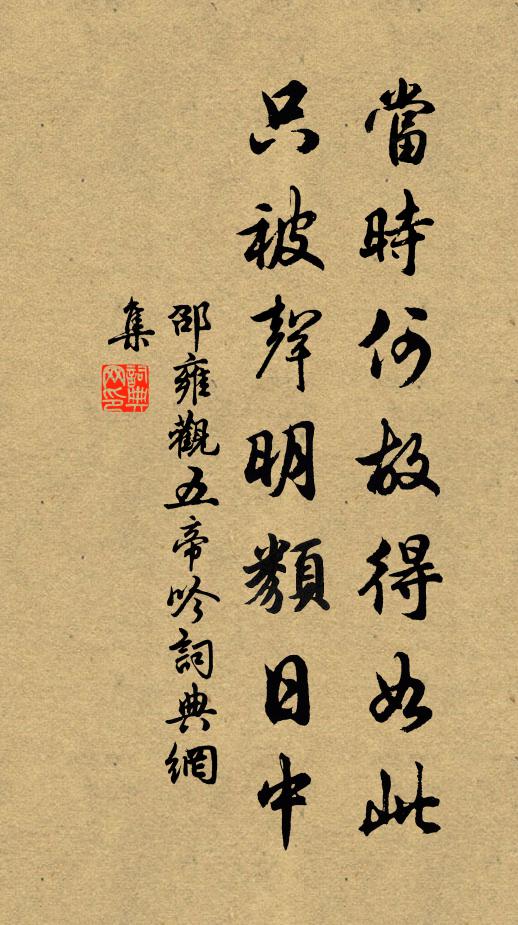 當時何故得如此
只被聲明類日中
邵雍觀五帝吟詞典網
集
詞典網印